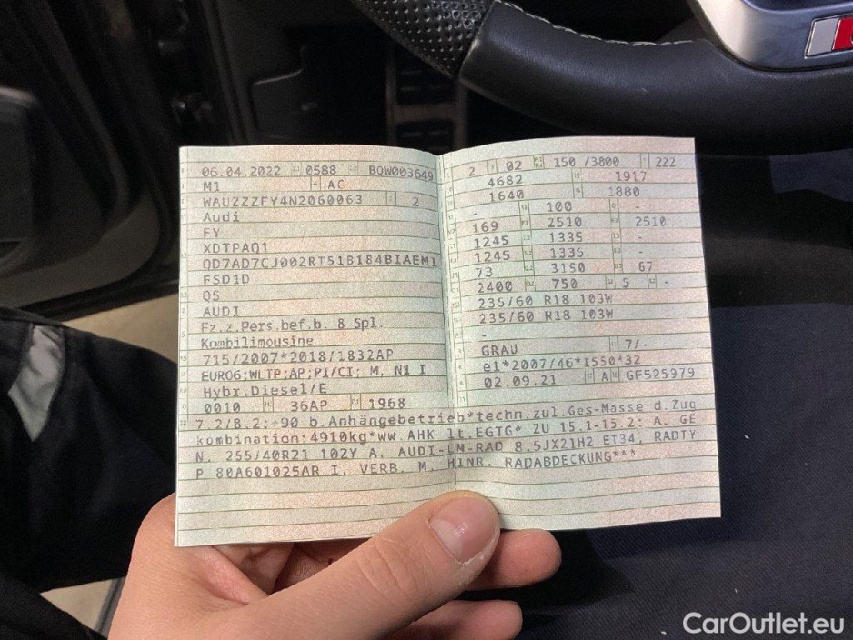 06.04.2022 0588 BOW003649
M1 AC
WAUZZZFY4N2060063 2
Audi
FY
XDTPAQ1
QD7AD7CJ002RT51B184BIAEM1
FSD1D
Q5
AUDI
Fz.z.Pers.bef.b. 8 Spl.
Kombilimousine
715/2007*2018/1832AP
EURO6;WLTP;AP;PI/CI; M, N1 I
Hybr.Diesel/E
0010 36AP 1968
2 02 150 /3800 222
4682 1917
1640 1880
- 100 -
169 2510 2510
1245 1335 -
1245 1335 -
73 3150 G7
2400 750 5 -
235/60 R18 103W
235/60 R18 103W
-
GRAU 7/-
e1*2007/46*1550*32
02.09.21 A GF525979
7.2/8.2: 90 b.Anhängebetrieb*techn.zul.Ges-Masse d.Zug
kombination:4910kg*ww.AHK lt.EGTG* ZU 15.1-15.2: A. GE
N. 255/40R21 102Y A. AUDI-LM-RAD 8.5JX21H2 ET34, RADTY
P 80A601025AR I. VERB. M. HINR. RADABDECKUNG***
CarOutlet.eu